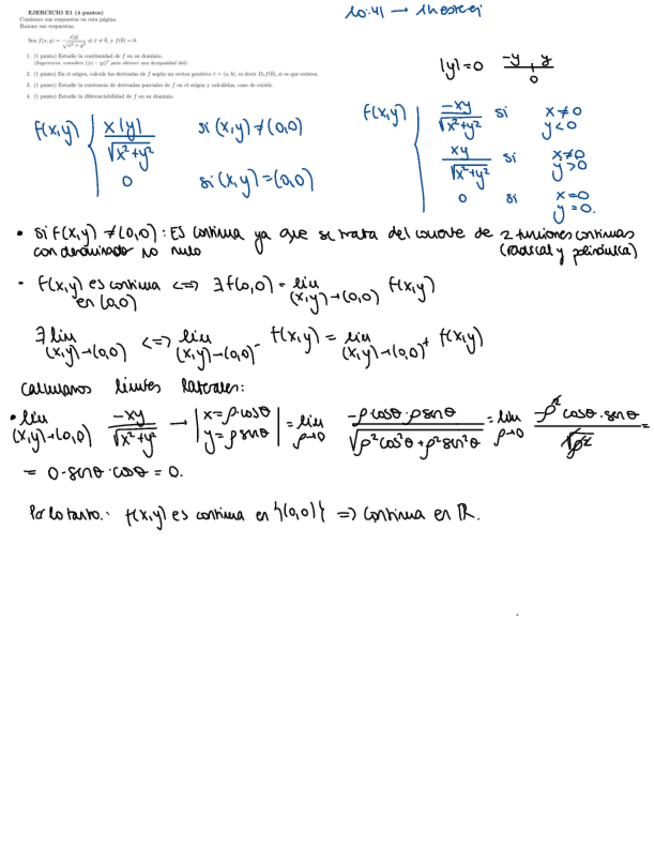 EJERCICIO E1 (4 puntos)
Comience sus respuestas en esta página.
Razone sus respuestas.
Sea f(x, y) = x|y| / √(x² + y²) si x̄ ≠ 0̄, y f(0̄) = 0.
1. (1 punto) Estudie la continuidad de f en su dominio.
(Sugerencia: considere (|x| - |y|)² para obtener una desigualdad útil)
2. (1 punto) En el origen, calcule las derivadas de f según un vector genérico v̄ = (a, b), es decir D_v̄ f(0̄), si es que existen.
3. (1 punto) Estudie la existencia de derivadas parciales de f en el origen y calcúlelas, caso de existir.
4. (1 punto) Estudie la diferenciabilidad de f en su dominio.
10:41 →
|y|=0 -y, y
0
f(x,y) { x|y| / √(x²+y²) si (x,y)≠(0,0)
0 si (x,y)=(0,0)
f(x,y) { -xy / √(x²+y²) si x≠0 y<0
xy / √(x²+y²) si x≠0 y>0
0 si x=0 y=0.
• si f(x,y) ≠(0,0): Es continua ya que se trata del cociente de 2 funciones continuas
con denominador no nulo (radical y polinómica)
- f(x,y) es continua <=> ∃ f(0,0) = lim (x,y)→(0,0) f(x,y)
en (0,0)
∃ lim (x,y)→(0,0) <=> lim (x,y)→(0,0)⁻ f(x,y) = lim (x,y)→(0,0)⁺ f(x,y)
Calculamos límites laterales:
• lim (x,y)→(0,0) -xy / √(x²+y²) → | x=ρcosθ y=ρsenθ | = lim ρ→0 -ρcosθ·ρsenθ / √(ρ²cos²θ+ρ²sen²θ) = lim ρ→0 -ρ² cosθ·senθ / √ρ² =
= 0·senθ·cosθ = 0.
Por lo tanto: f(x,y) es continua en {(0,0)} => continua en R.